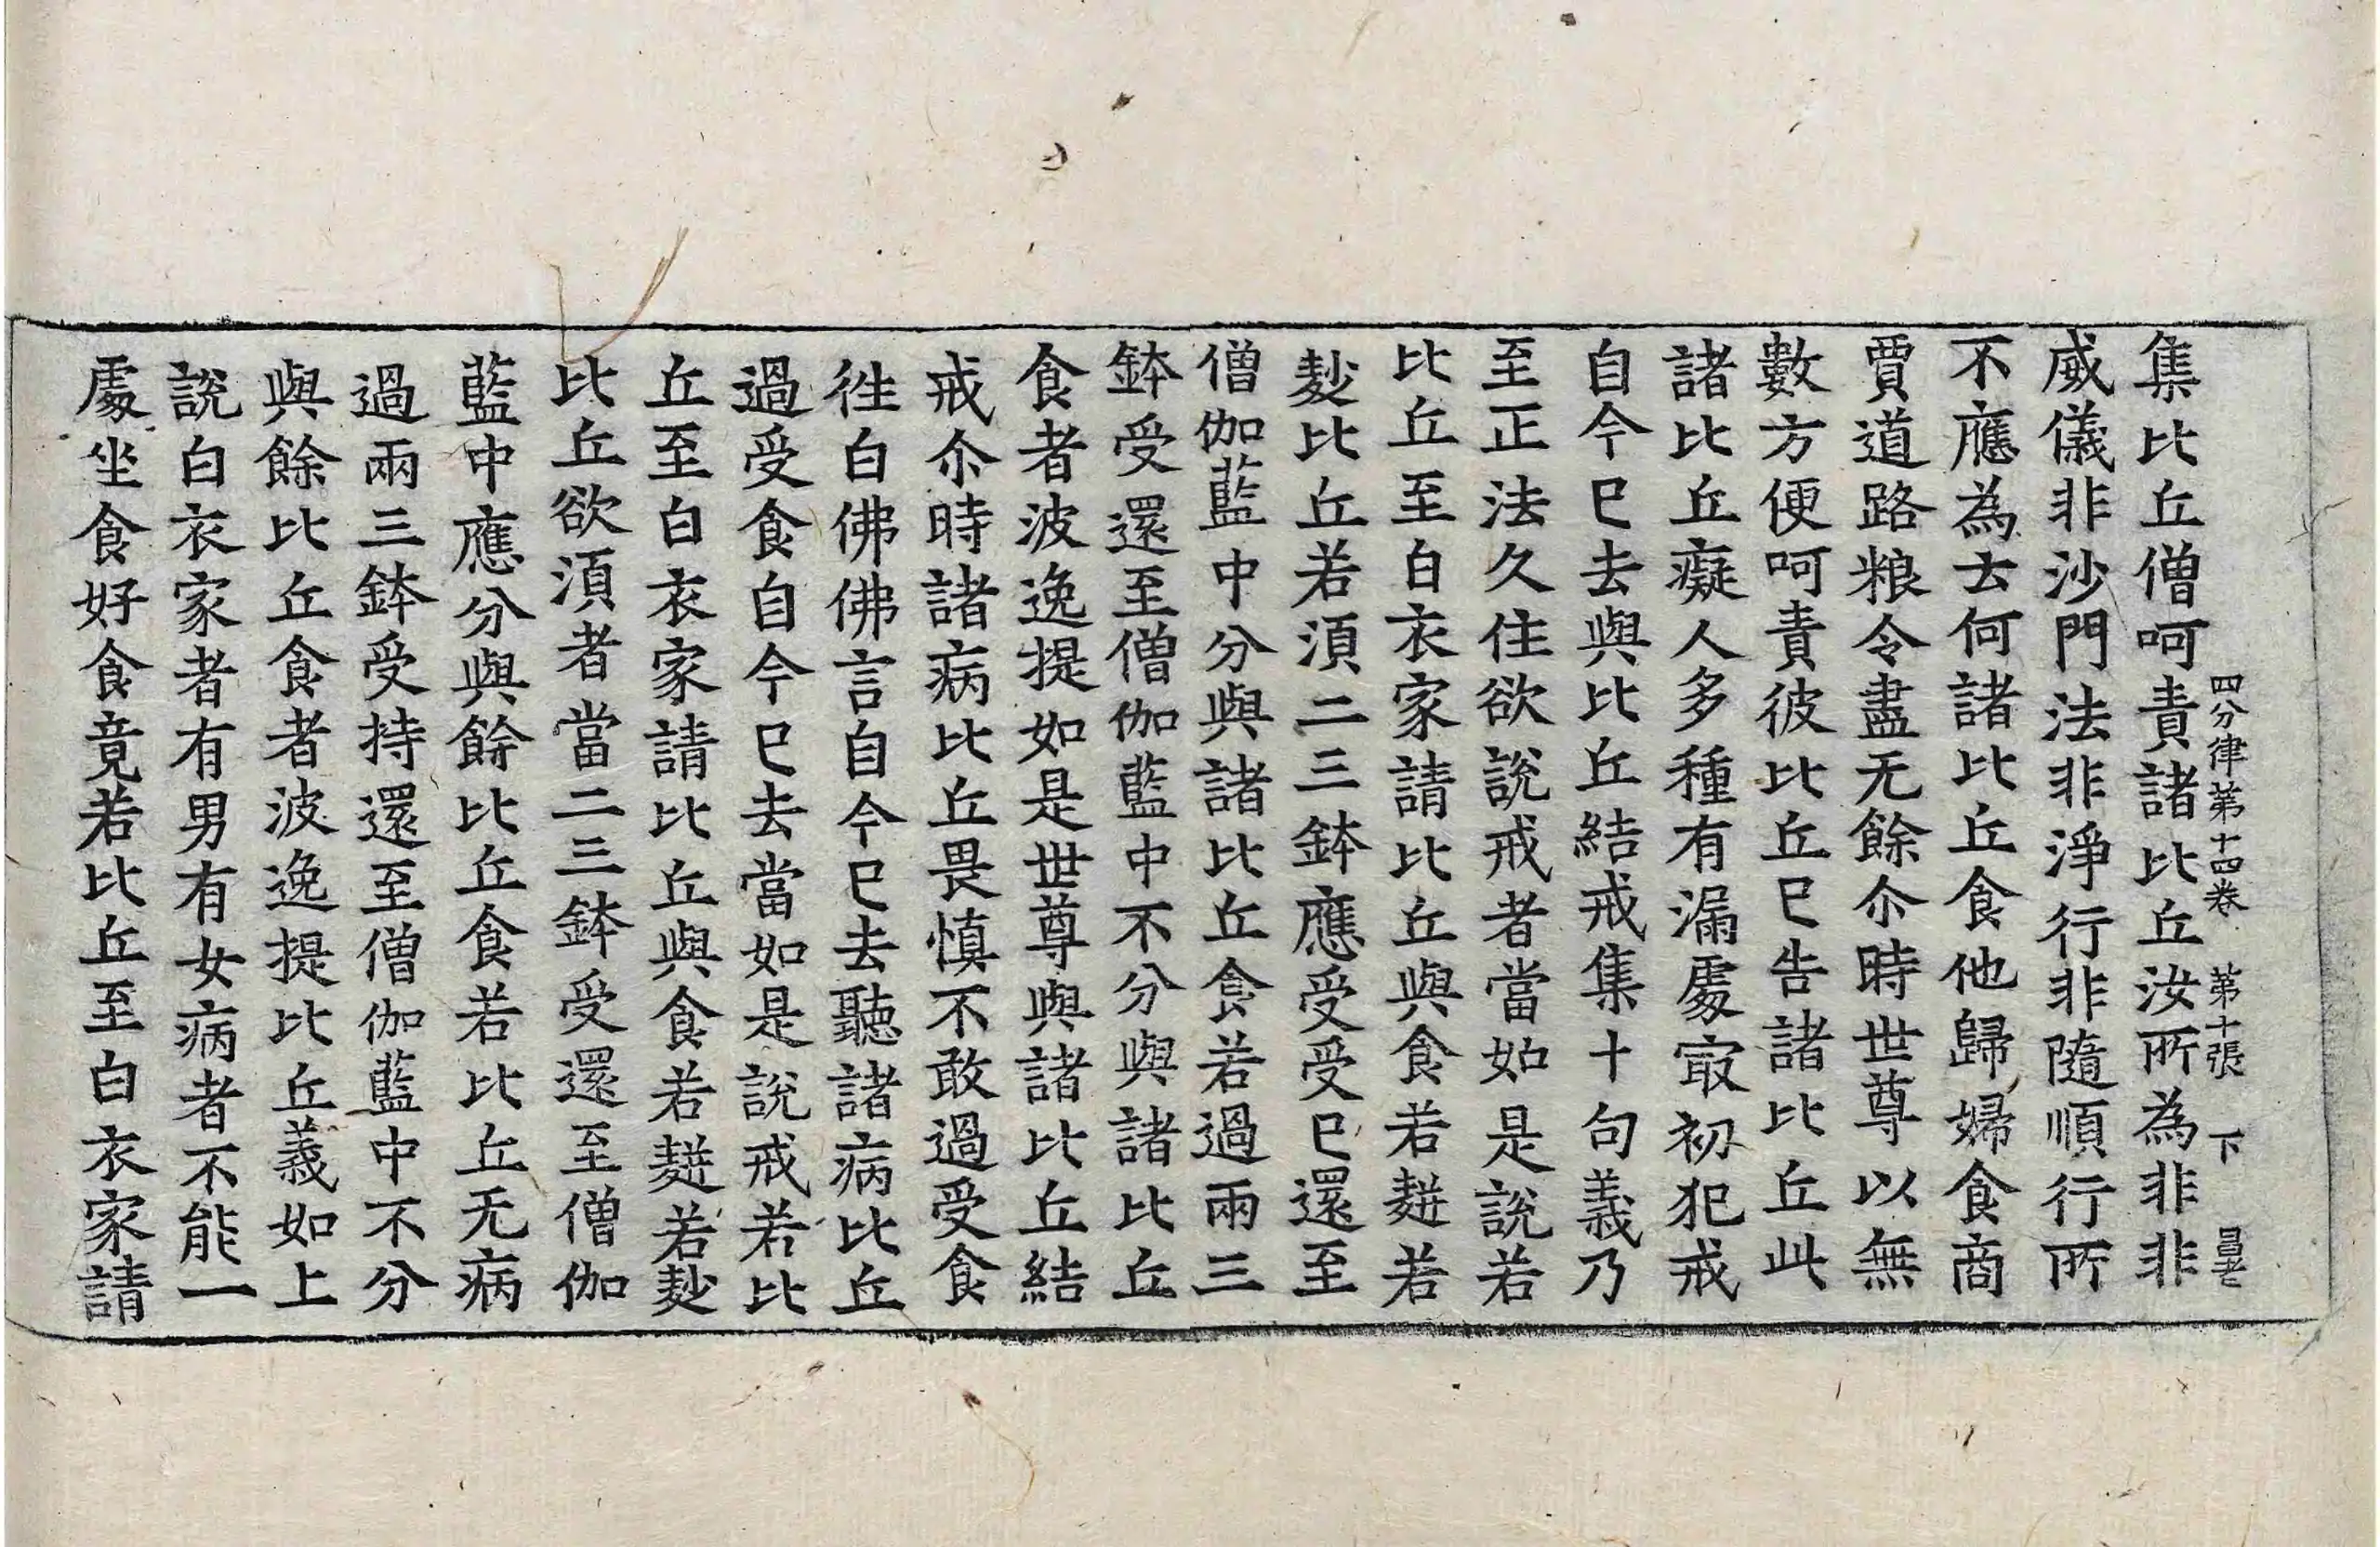 四分律第十四卷 第十張 下
集比丘僧呵責諸比丘汝所為非非
威儀非沙門法非淨行非隨順行所
不應為去何諸比丘食他歸婦食商
賈道路粮令盡无餘尒時世尊以無
數方便呵責彼比丘已告諸比丘此
諸比丘癡人多種有漏處㝡初犯戒
自今已去與比丘結戒集十句義乃
至正法久住欲說戒者當如是說若
比丘至白衣家請比丘與食若麨若
麨比丘若須二三鉢應受受已還至
僧伽藍中分與諸比丘食若過兩三
鉢受還至僧伽藍中不分與諸比丘
食者波逸提如是世尊與諸比丘結
戒尒時諸病比丘畏慎不敢過受食
往白佛佛言自今已去聽諸病比丘
過受食自今已去當如是說戒若比
丘至白衣家請比丘與食若麨若麨
比丘欲須者當二三鉢受還至僧伽
藍中應分與餘比丘食若比丘无病
過兩三鉢受持還至僧伽藍中不分
與餘比丘食者波逸提比丘義如上
說白衣家者有男有女病者不能一
處坐食好食竟若比丘至白衣家請